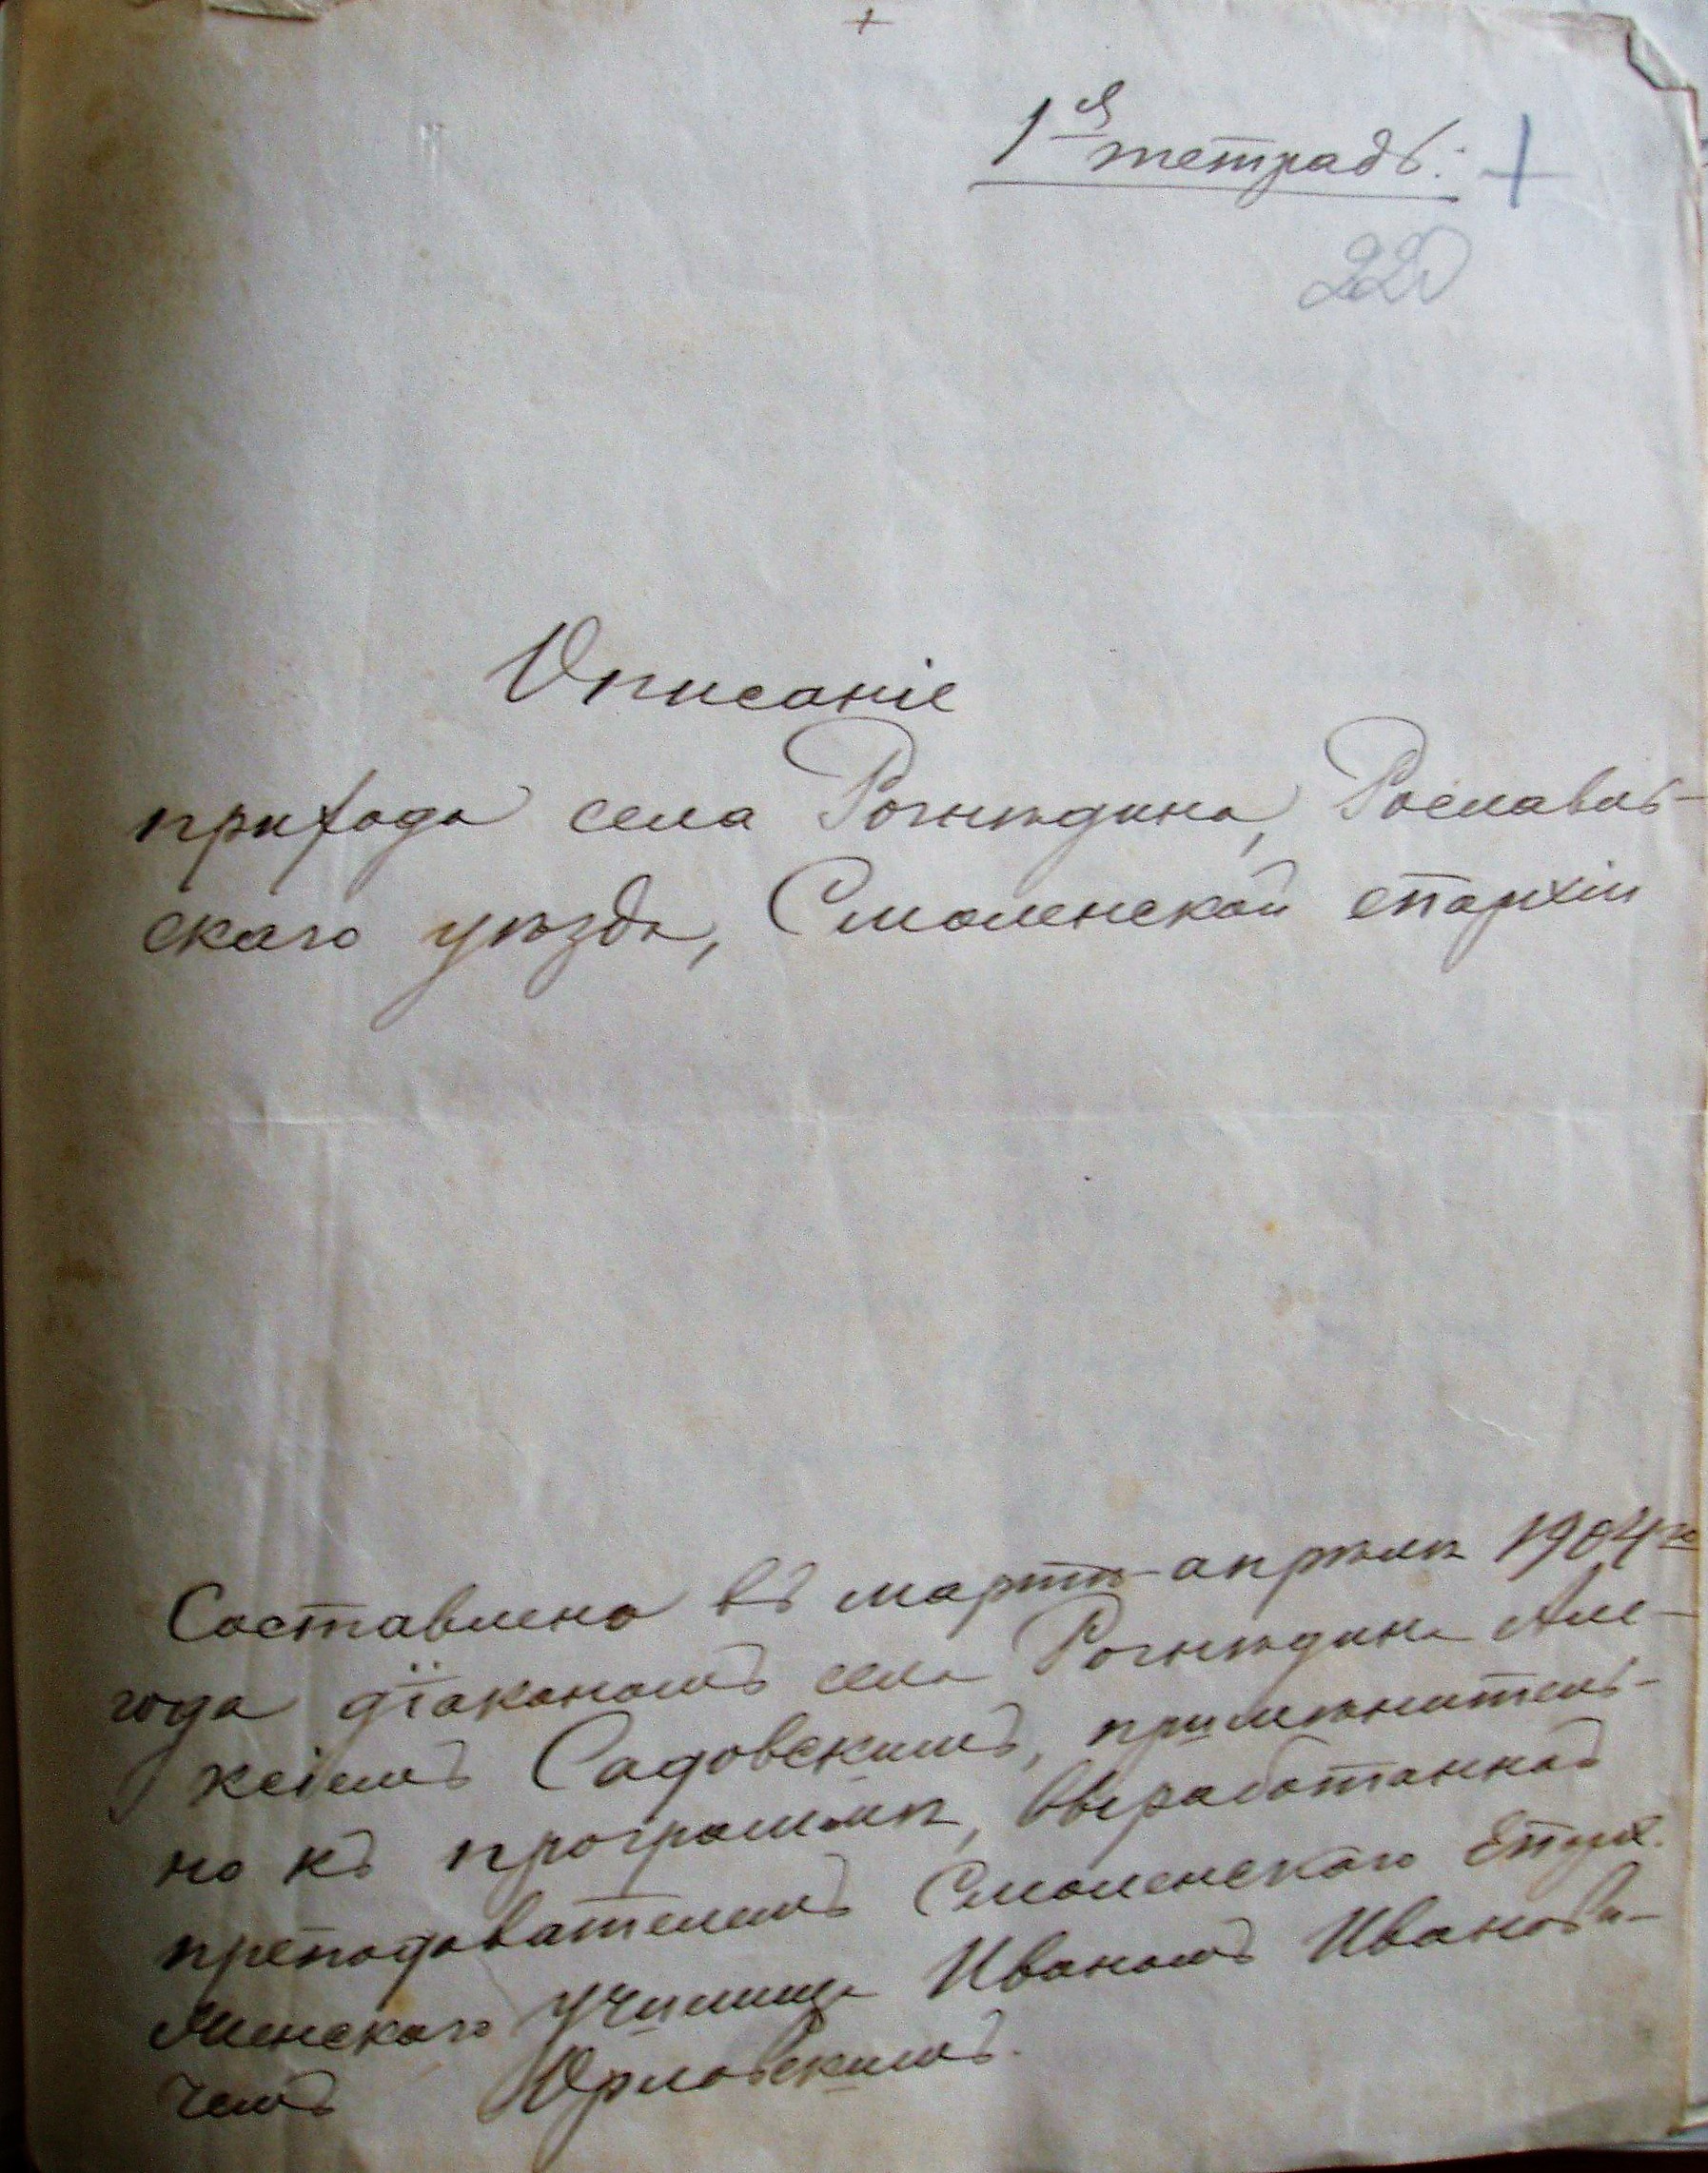 1ая тетрадь.
220
Описаніе
прихода села Рогнѣдина, Рославль-
скаго уѣзда, Смоленской епархіи
Составлено въ мартѣ-апрѣлѣ 1904 го
года діакономъ села Рогнѣдина Але-
ксіемъ Садовскимъ, примѣнитель-
но къ программѣ, выработанной
преподавателемъ Смоленскаго Епарх.
Женскаго училища Иваномъ Иванови-
чемъ Орловскимъ.